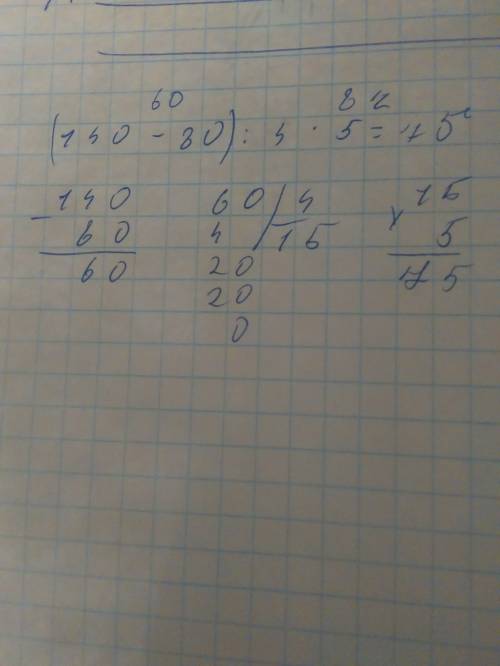 60
(140 - 80) : 4 · 5 = 75
- 140
60
60
60 / 4
4 15
20
20
0
x 15
5
75